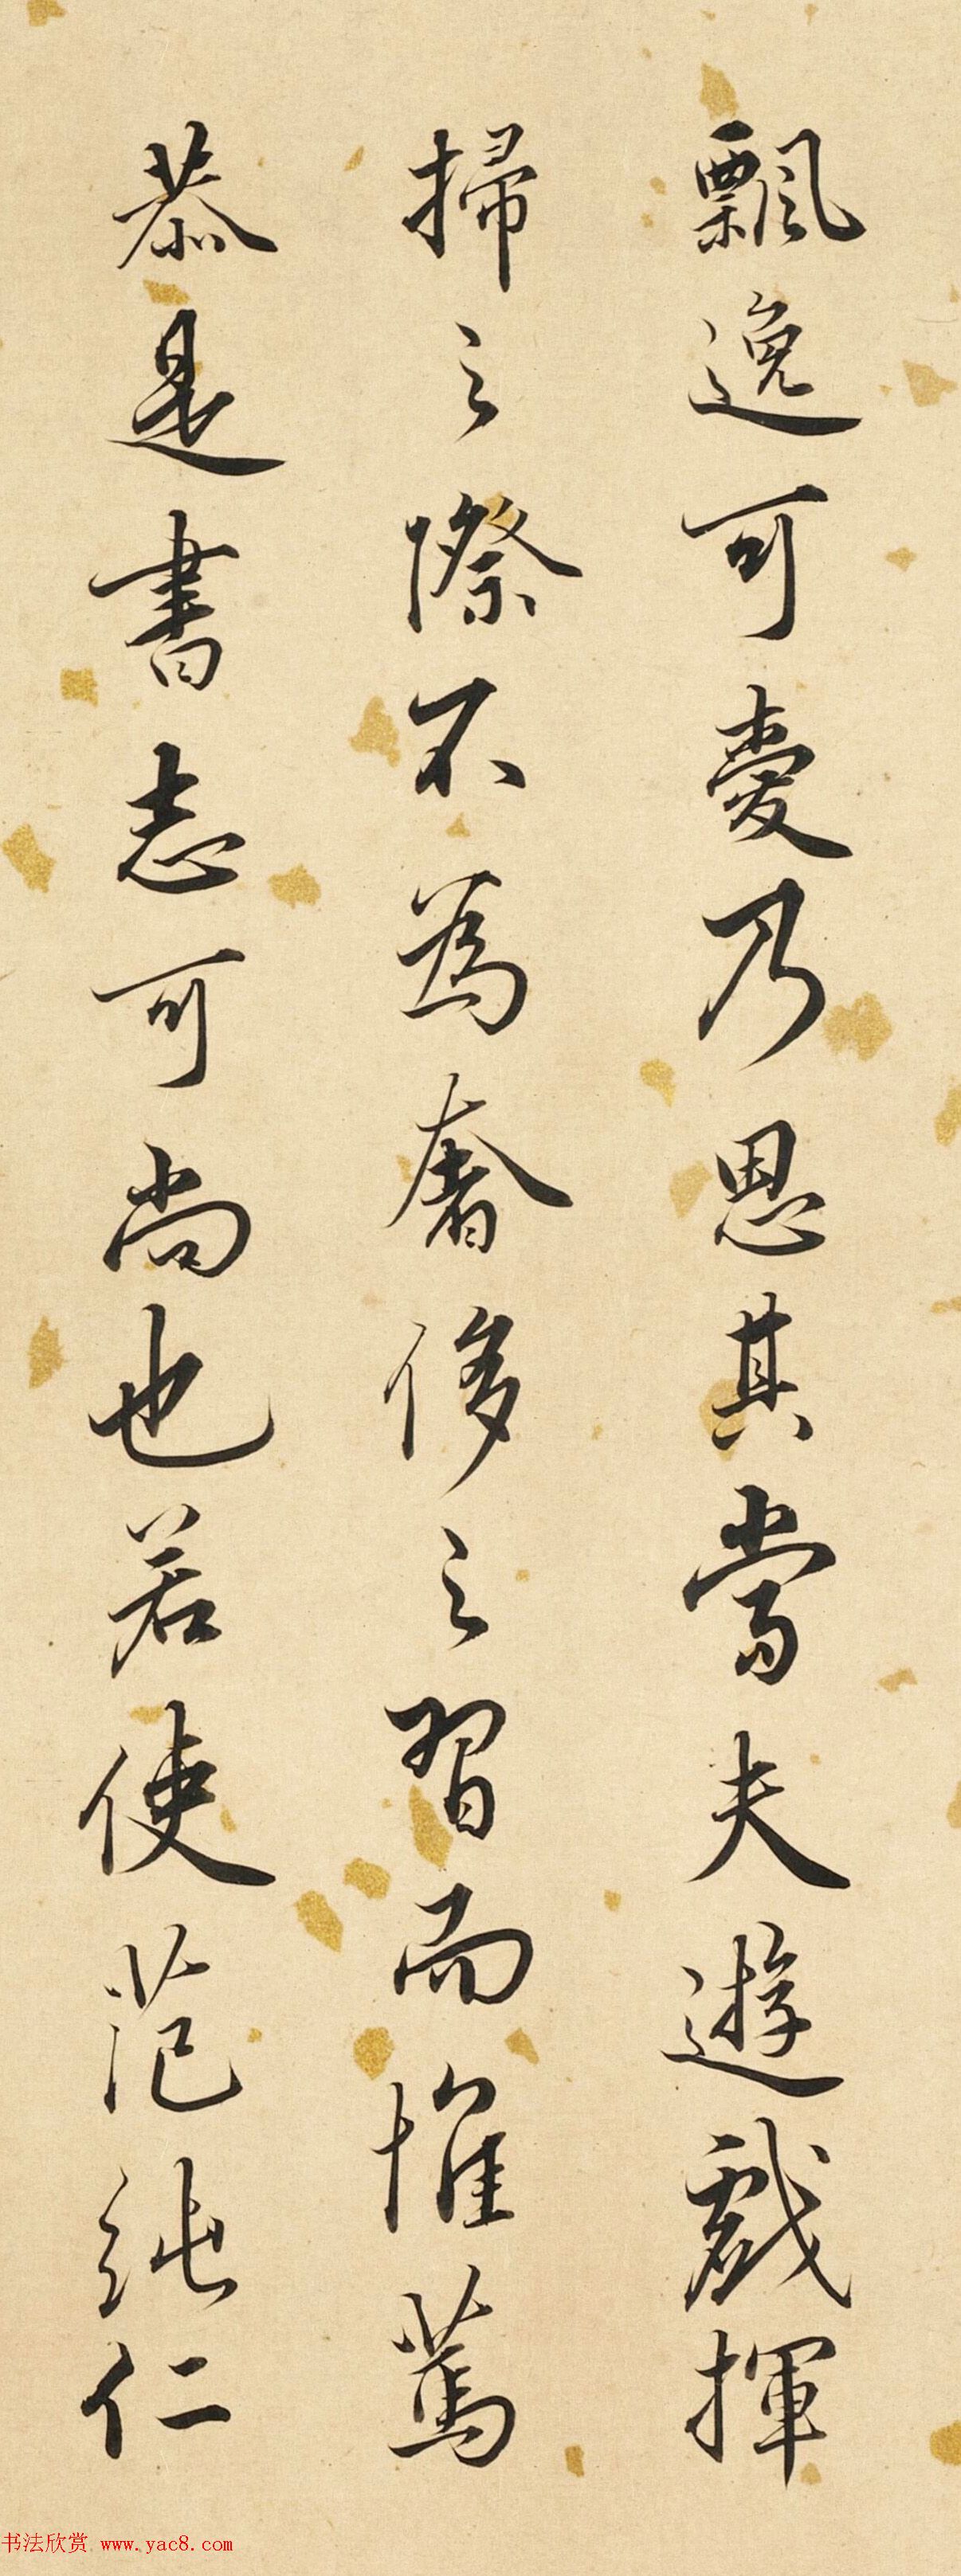 飄逸可愛乃思其當夫遊戲揮
掃之際不為奢侈之習而惟篤
恭是書志可尚也若使范純仁
书法欣赏 www.yac8.com